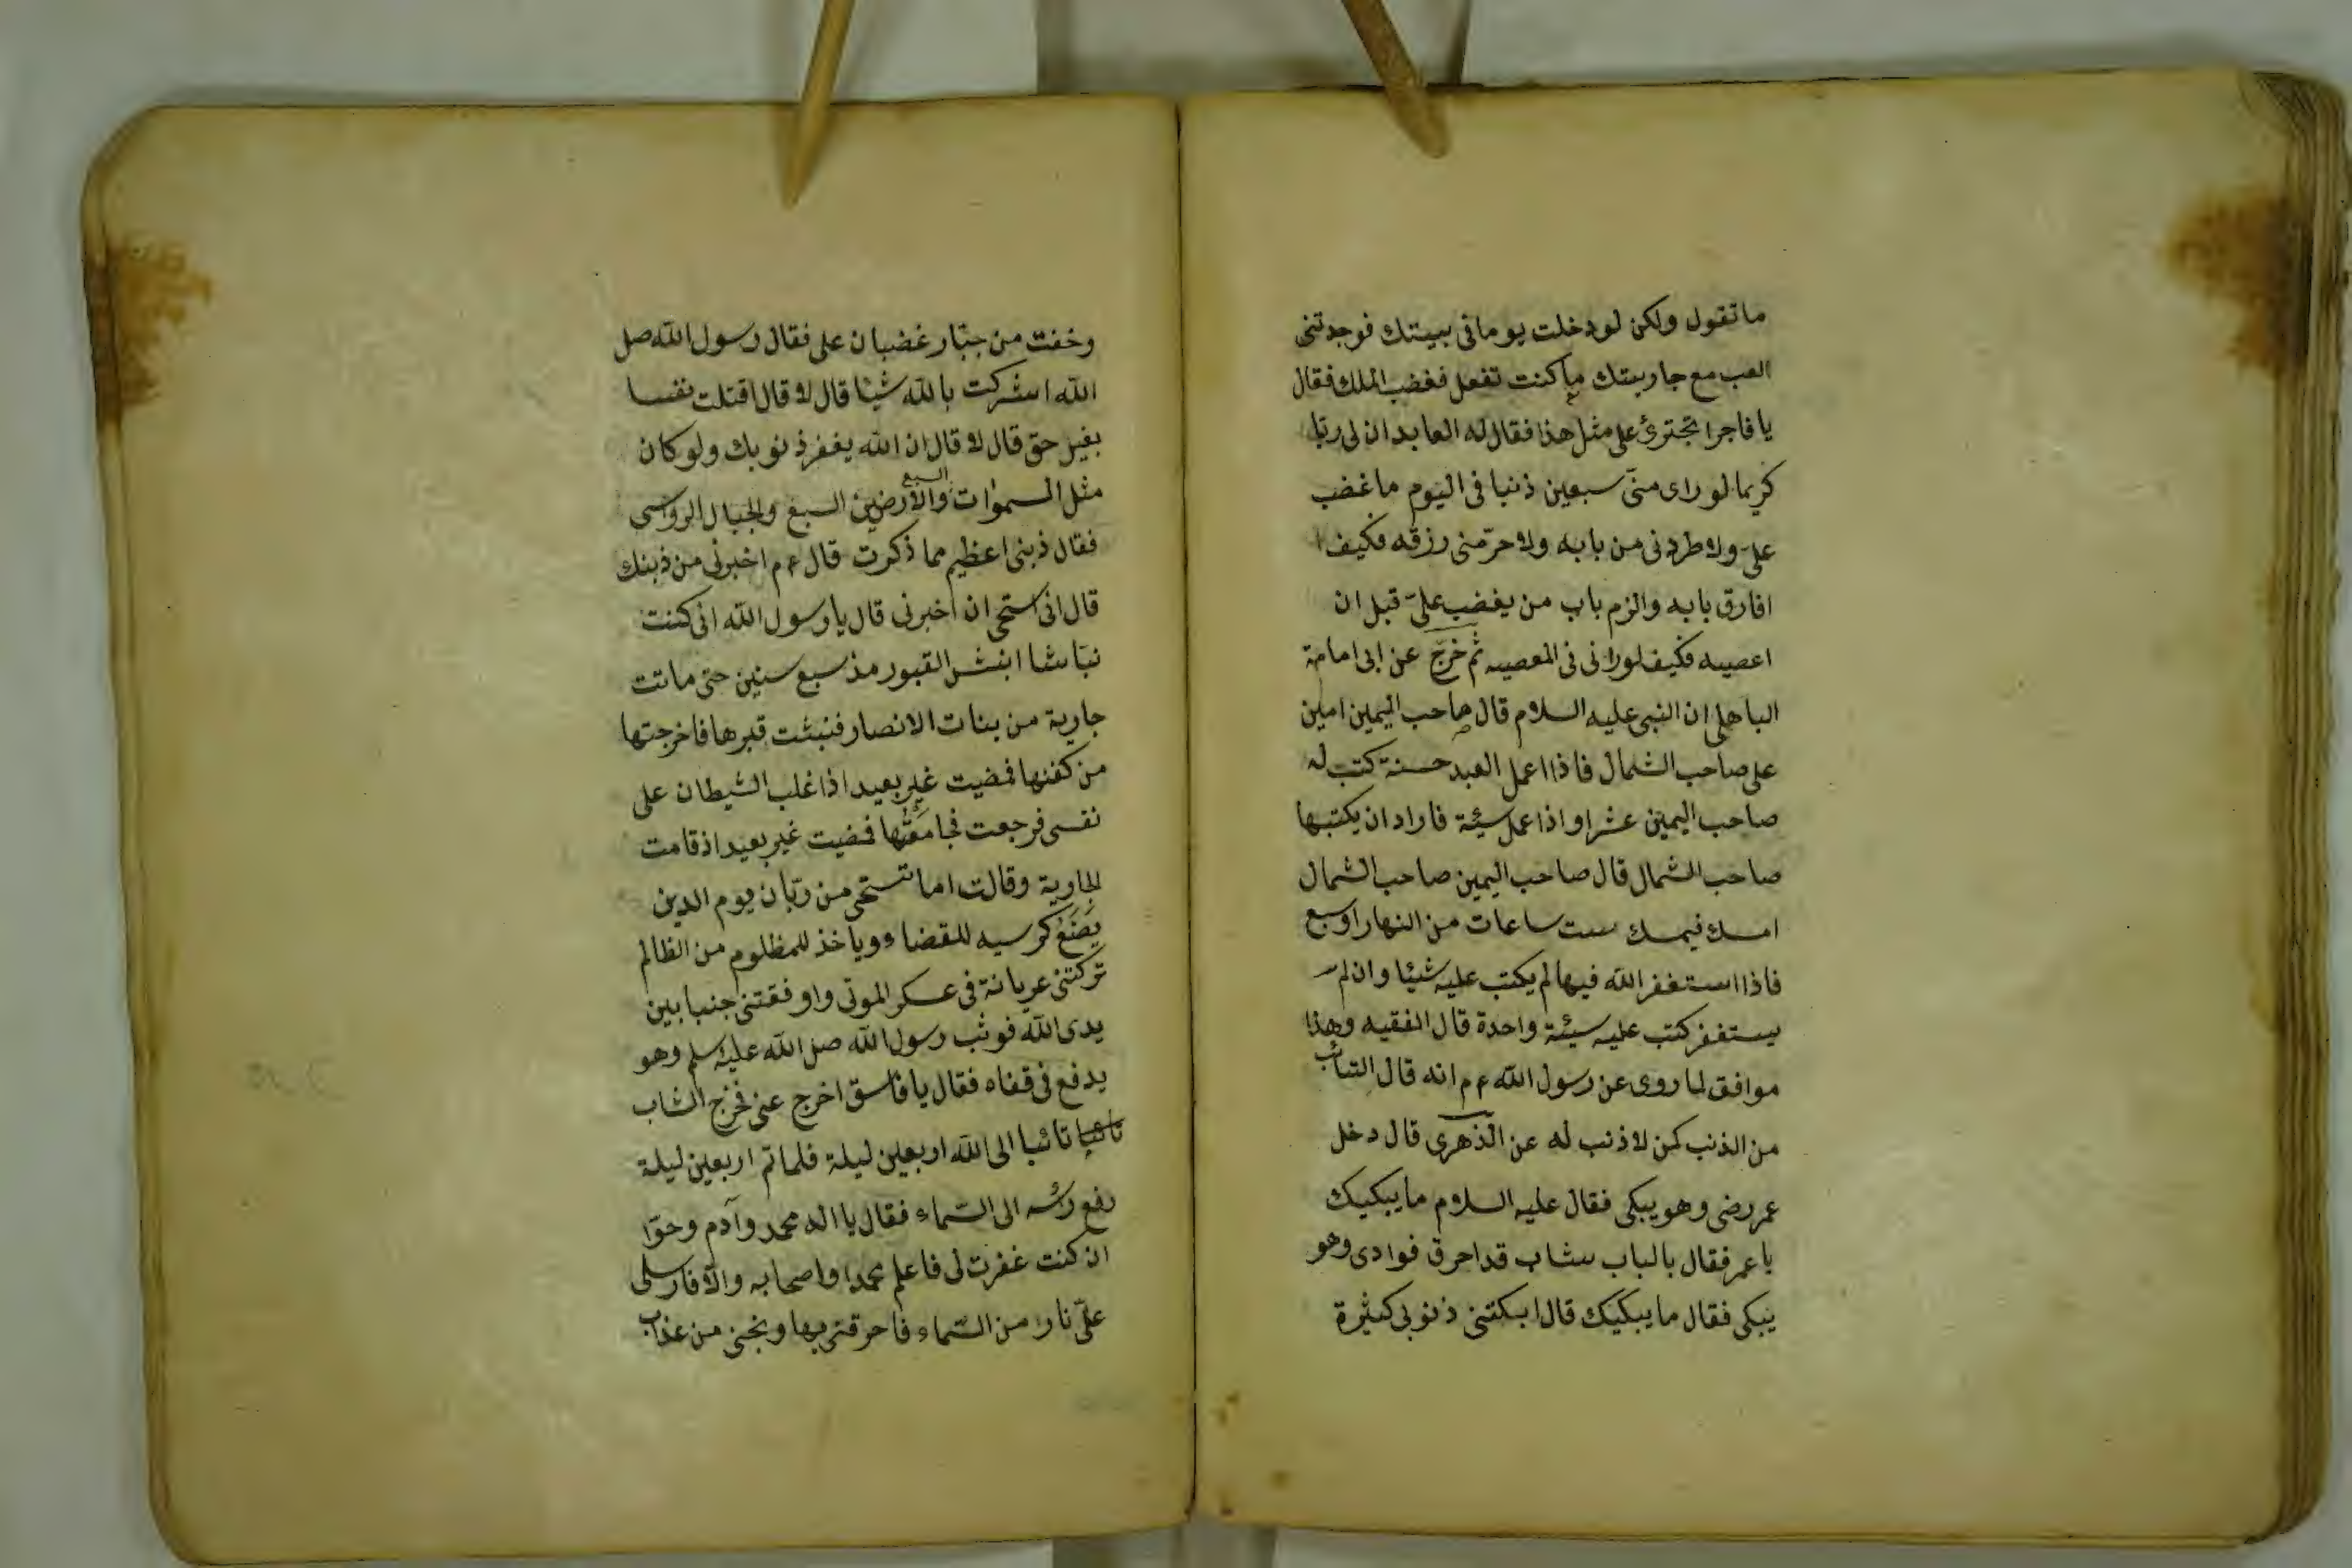 ما تقول ولكن لو دخلت يوما فى بيتك فوجدتنى
العب مع جاريتك ما كنت تفعل فغضب الملك فقال
يا فاجر اتجترئ على مثل هذا فقال له العابد ان لى ربا
كريما لو راى منى سبعين ذنبا فى اليوم ما غضب
على ولا طردنى من بابه ولا حرمنى رزقه فكيف
افارق بابه والزم باب من يغضب على قبل ان
اعصيه فكيف لو رانى فى المعصيه ثم خرج عن ابى امامة
الباهلى ان النبى عليه السلام قال صاحب اليمين امين
على صاحب الشمال فاذا اعمل العبد حسنة كتب له
صاحب اليمين عشرا واذا عمل سيئة فاراد ان يكتبها
صاحب الشمال قال صاحب اليمين صاحب الشمال
امسك فيمسك ست ساعات من النهار او سبع
فاذا استغفر الله فيها لم يكتب عليه شيئا وان لم
يستغفر كتب عليه سيئة واحدة قال الفقيه وهذا
موافق لما روى عن رسول الله عم انه قال التائب
من الذنب كمن لا ذنب له عن الذهرى قال دخل
عمر رضى وهو يبكى فقال عليه السلام ما يبكيك
يا عمر فقال بالباب شاب قد احرق فوادى وهو
يبكى فقال ما يبكيك قال ابكتنى ذنوبى كثيرة
وخفت من جبار غضبان على فقال رسول الله صل
الله اشركت بالله شيا قال لا قال اقتلت نفسا
بغير حق قال لا قال ان الله يغفر ذنوبك ولو كان
مثل السموات السبع والارضين السبع والجبال الرواسى
فقال ذبنى اعظيم مما ذكرت قال عم اخبرنى من ذبنك
قال انى استحى ان اخبرنى قال يا رسول الله انى كنت
نباشا ابنش القبور مذ سبع سنين حتى ماتت
جارية من بنات الانصار فنبشت قبرها فاخرجتها
من كفنها فمضيت غير بعيد اذا غلب الشيطان على
نفسى فرجعت فجامعتها فمضيت غير بعيد اذ قامت
الجاوية وقالت اما تستحى من ربان يوم الدين
يضع كرسيه للقضاء وياخذ للمظلوم من الظالم
تركتنى عريانة فى عسكر الموتى واوفقتنى جنبا بين
يدى الله فوثب رسول الله صل الله عليه سلم وهو
يدفع فى قفاه فقال يا فاسق اخرج عنى فخرج الشاب
تائبا تائبا الى الله اربعين ليلة فلما تم اربعين ليلة
رفع رائسه الى السماء فقال يا اله محمد وآدم وحوا
ان كنت غفرت لى فاعلم محمدا واصحابه والا فارسلى
على نارا من السماء فاحرقنى بها ونجنى من عذاب